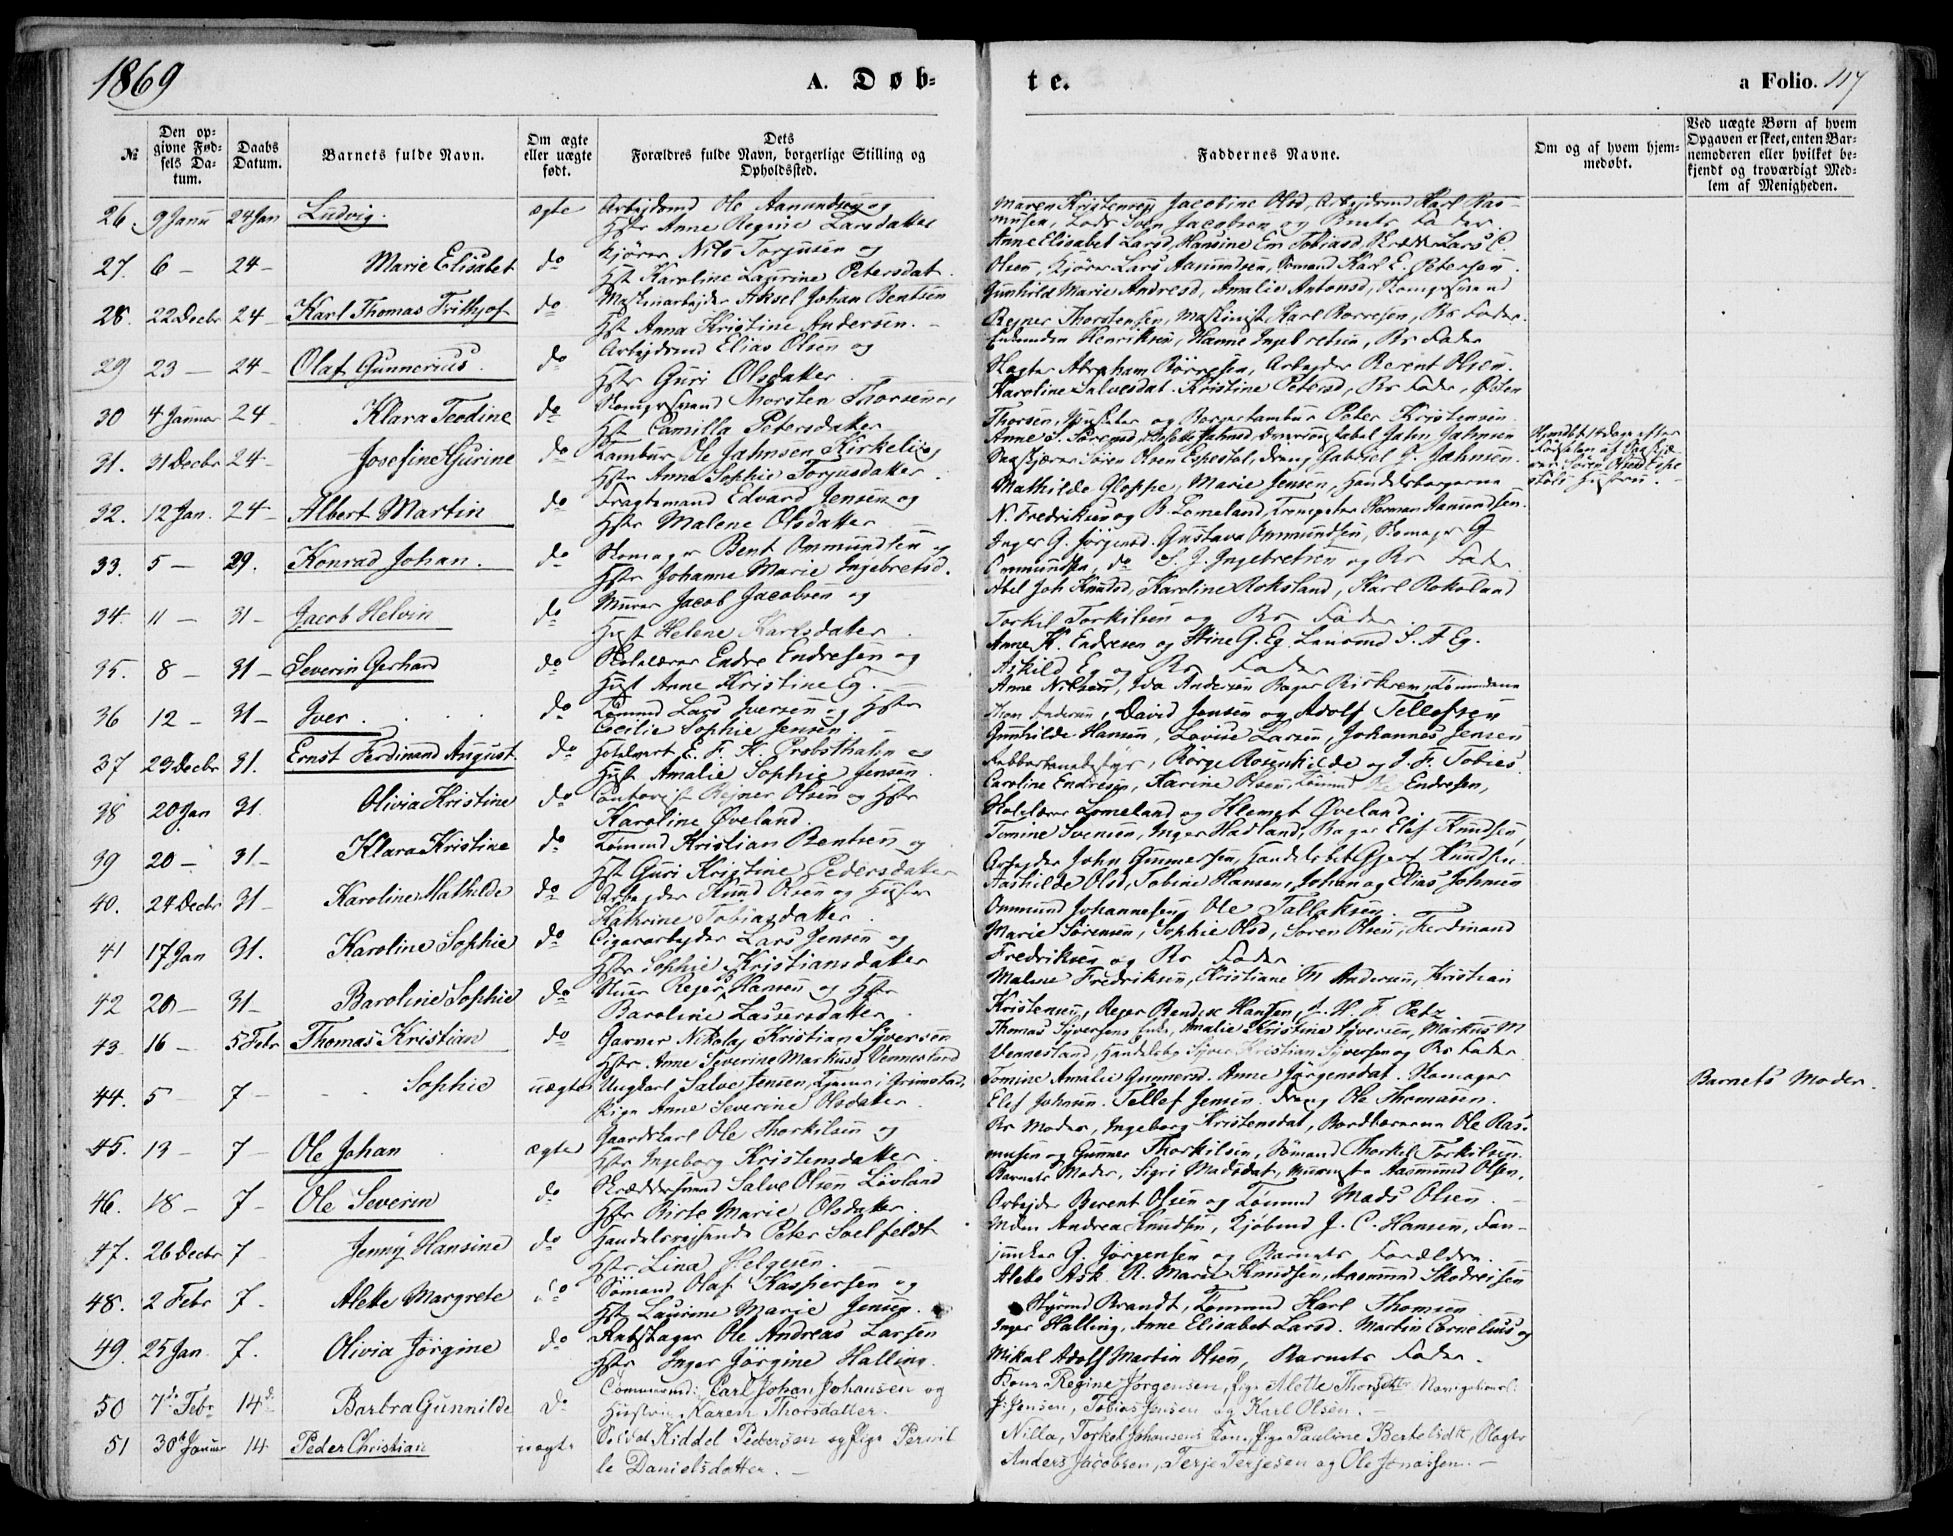 1869
A. Døb-
te.
a Folio. 117
№
Den op-
givne Fød-
sels Da-
tum.
Daabs
Datum.
Barnets fulde Navn.
Om ægte
eller uægte
født.
Dets
Forældres fulde Navn, borgerlige Stilling og
Opholdssted.
Faddernes Navne.
Om og af hvem hjem-
medøbt.
Ved uægte Børn af hvem
Opgaven er skeet, enten Bar-
nemoderen eller hvilket be-
kjendt og troværdigt Med-
lem af Menigheden.
26 9 Janu 24 Jan Ludvig. ægte Arbejdsmd Ole Aanundsen og
Hstr Anne Regine Larsdatter
Maren Kristensen, Jacobine Olsd, Arbejdsmd Karl Ras-
musen, Lods Sven Jacobsen og Brnts Fader
27. 6 – 24 – Marie Elisabet do Kjører Nils Torjusen og
Hst Karoline Laurine Petersdat.
Anne Elisabet Larsd, Hansine Em Tobiasd, Skrædder Lars C.
Olsen, Kjører Lars Aanundsen, Sømand Karl E. Petersen.
28. 22 Decbr 24 – Karl Thomas Frithjof do Maskinarbejder Aksel Johan Bentsen
Hst Anna Kristine Andersen. –
Gunhild Marie Andresd, Amalie Antonsd,
Rejner Thorstensen, Maskinist Karl Børresen, Br Fader.
29 23 – 24 – Olaf Gunnerius. do Arbejdsmd Elias Olsen og
Hstr Guri Olsdatter
Henriksen, Hanne Ingebretsen, Br Fader
Slagter Abraham Børresen, Arbejder Berent Olsen.
30 4 Januar 24 Klara Teodine do Thorsten Thorsen og
Hst Camilla Petersdatter
Karoline Salvesdat. Kristine Petersd, Br Fader, Østen
Thorsen, og Korpstambur Peter Kristensen
31. 31 Decbr 24 – Josefine Hjurine do Tambur Ole Jahnsen Kirkelie og
Hstr Anne Sophie Torjusdatter.
Anne S. Sørensd, Josefe Jahnsd, Jahn Jahnsen
Søren Olsen Espestøl, Dreng Gabriel J. Jahnsen.
Hjemdøbt 14 Dage efter
Fødselen af
Søren Olsens Espe
støls Hustru.
32. 12 Jan. 24 – Albert Martin do Fragtemand Edvard Jensen og
Hstr Malene Olsdatter
Mathilde Gloppe, Marie Jensen, Handelsborgerne
N. Fredriksen og B. Lomeland, Trompeter Herman Aanundsen.
33. 5 – 29. Konrad Johan. do Skomager Bent Ommundsen og
Hstr Johanne Marie Ingebretsd.
Inger G. Jørgensd. Gustava Ommundsen, Skomager G
Ommundsen, do S. J. Ingebretsen og Br Fader
34. 11 – 31 – Jacob Helvin do Murer Jacob Jacobsen og
Hust Helene Karlsdatter.
Abel Joh Knudsd, Karoline Roksland, Karl Roksland
Torkil Torkilsen og Br Fader.
35. 8 – 31 – Severin Gerhard do Skolelærer Endre Endresen og
Hust Anne Kristine Eg. –
Anne K. Endresen og Stine G. Eg S. A Eg.
Askild Eg og Br Fader
36 12 – 31 – Iver. do Tømmd Lars Iversen og Hstr
Cecilie Sophie Jensen
Anne Nilsen, Ida Andersen Bager Birkrem, Tømmdene
Thom Andersen, David Jensen og Adolf Tellefsen
37 23 Decbr 31. Ernst Ferdinand August do E. F. H. Probsthahn og
Hust Amalie Sophie Jensen
Gunhilde Hansen, Lovise Larsen, Johannes Jensen
Børge Rosenkilde og J. F. Tobies.
38 20 Jan 31. Olivia Kristine do Contorist Rejner Olsen og Hstr
Karoline Øveland.
Caroline Endresen, Karine Olsen, Tømmd Ole Endresen,
Skolelærer Lomeland og Klemet Øveland.
39 20 – 31 – Klara Kristine do Tømmd Kristian Bentsen og
Hst Guri Kristine Pedersdatter
Tomine Svensen, Inger Hadland, Bager Elef Knudsen,
Arbejder John Gunnersen, Handelsbet Gjert Knudsen.
40. 24 Decbr 31 – Karoline Mathilde do Arbejder Knud Olsen og Hustr
Kathrine Tobiasdatter.
Aashilde Olsd, Tobine Hansen, Johan og Elias Johnsen
Ommund Johannesen, Ole Tallaksen.
41 17 Jan 31. Karoline Sophie do Cigararbejder Lars Jensen og
Hstr Sophie Kristiansdatter
Marie Sørensen, Sophie Olsd, Søren Olsen, Ferdinand
Fredriksen og Br Fader
42 20 – 31 – Baroline Sophie do Rejer B. Hansen og Hstr
Baroline Lassensdatter.
Malene Fredriksen, Kristiane M Andersen, Kristian
Kristensen, Rejer Bendix Hansen, J. H. F. Petz.
43 16 – 5 Febr Thomas Kristian do Garver Nikolaj Kristian Syversen
Hstr. Anne Severine Markusd Vennesland
Thomas Syversens Enke, Amalie Kristine Syversen, Markus M
Vennesland, Handelsbg Syver Kristian Syversen og Br Fader
44. 5 – 7 – Sophie uægte Ungkarl Salve Jensen, Tjener i Grimstad,
Pige Anne Severine Olsdatter.
Tomine Amalie Gunnersd. Anne Jørgensdat. Skomager
Elef Johnsen. Tellef Jensen. Dreng Ole Thomasen.
Barnets Moder.
45. 13 – 7 – Ole Johan ægte Gaardskarl Ole Thorkilsen og
Hstr Ingeborg Kristensdatter
Br Moder, Ingeborg Kristensdat, Bordbærerne Ole Ras-
musen og Gunner Thorkilsen, Sømand Thorkel Torkilsen.
46. 18 – 7 – Ole Severin do Skræddersvend Salve Olsen Løvland
Hstr Birte Marie Olsdatter.
Barnets Moder, Sigri Madsdat, Aasmund Olsen,
Arbejder Berent Olsen og Tømmd Mads Olsen. –
47. 26 Decbr 7 – Jenny Hansine do Handelsrejsende Peter Soelfeldt
Hstr Lina Helgesen.
Mdm Andrea Knudsen, Kjøbmd J. C. Hansen, Fan-
junker G. Jørgensen og Barnets Forældre.
48. 2 Febr 7. Alette Margrete do Sømand Olaf Kaspersen og
Hst Laurine Marie Jensen.
Alette Ask. R. Marie Knudsen, Aasmund Skodvisen
Styrmd Brandt, Tømmd Karl Thomsen
49. 25 Jan. 7. Olivia Jörgine do Rebslager Ole Andreas Larsen
Hstr Inger Jörgine Halling.
Inger Halling, Anne Elisabet Larsd. Martin Cornelius og
Mikal Adolf Martin Olsen, Barnets Fader.
50 7de Febr 14de Barbra Gunnilde do Tømmermd: Carl Johan Johansen og
Hustru Karen Thorsdatter.
Kone Regine Jörgensen, Pige Alette Thorsdttr Navigationsl:
J: Jensen, Tobias Jensen og Karl Olsen. –
51 30te Januar 14 Peder Christian uægte Soldat Kiddel Pedersen og Pige Pernil
le Danielsdatter. –
Nilla, Torkel Johansens Kone, Pige Pauline Bertelsdtt, Slagter
Anders Jacobsen, Terje Terjesen og Ole Jonassen. –